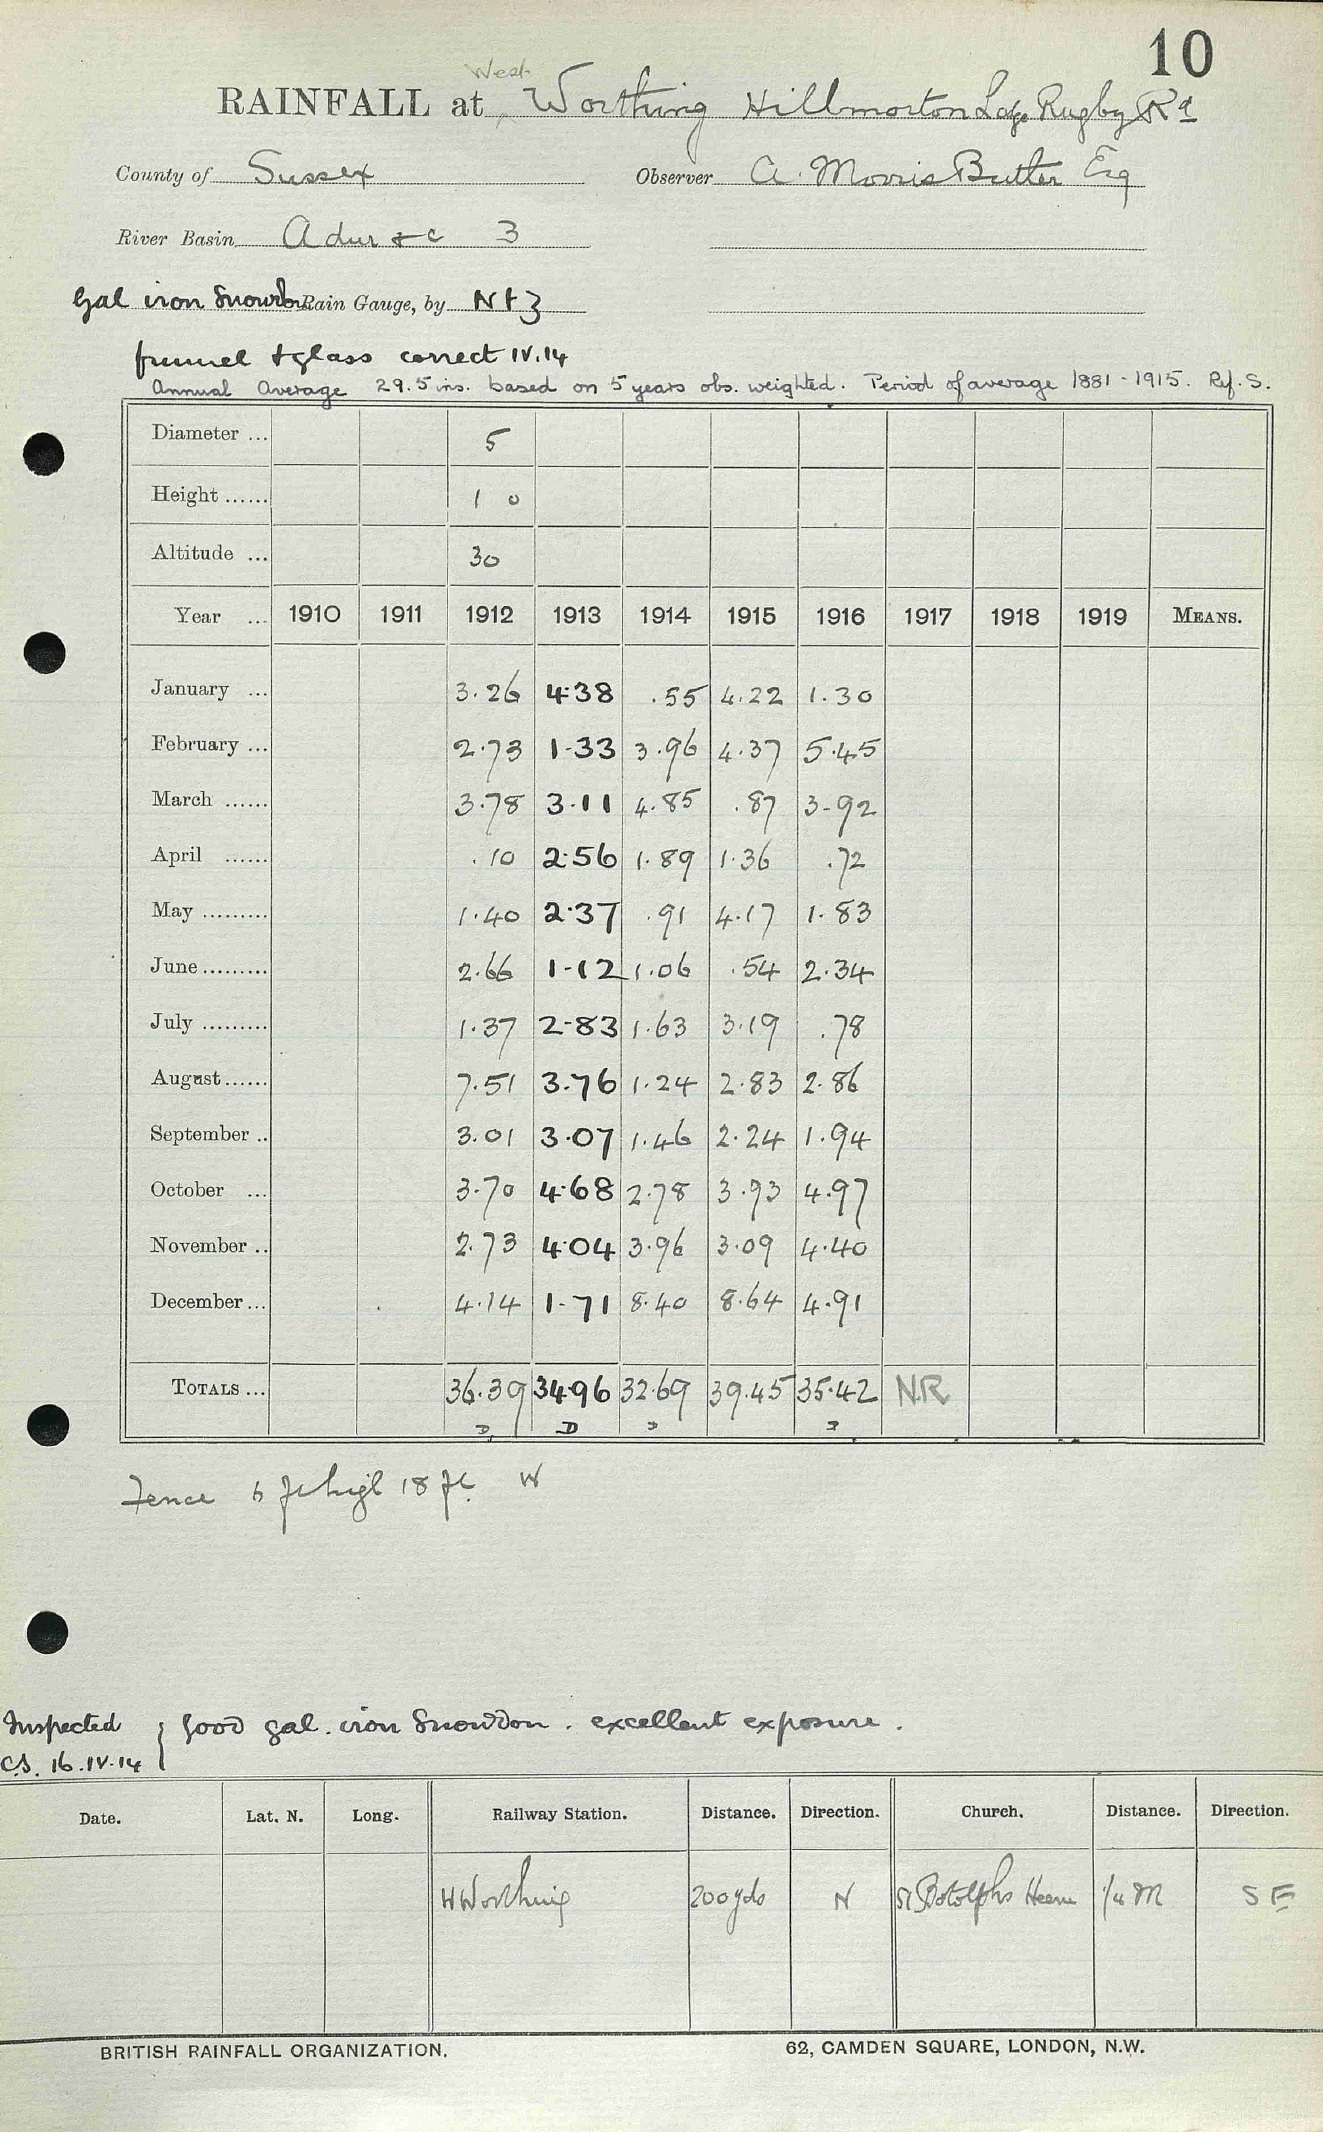 10
West
RAINFALL at Worthing Hillmorton Ldge Rugby Rd
County of Sussex Observer A. Morris Butler Esq
River Basin Adur &c 3
Gal iron Snowdon Rain Gauge, by N & Z
funnel & glass correct IV.14
Annual Average 29.5 ins. based on 5 years obs. weighted. Period of average 1881-1915. Ref. S.
Diameter ... 5
Height ...... 1 0
Altitude ... 30
Year ... 1910 1911 1912 1913 1914 1915 1916 1917 1918 1919 MEANS.
January ... 3.26 4.38 .55 4.22 1.30
February ... 2.73 1.33 3.96 4.37 5.45
March ...... 3.78 3.11 4.85 .87 3.92
April ...... .10 2.56 1.89 1.36 .72
May ......... 1.40 2.37 .91 4.17 1.83
June ......... 2.66 1.12 1.06 .54 2.34
July ......... 1.37 2.83 1.63 3.19 .78
August ...... 7.51 3.76 1.24 2.83 2.86
September .. 3.01 3.07 1.46 2.24 1.94
October ... 3.70 4.68 2.78 3.93 4.97
November .. 2.73 4.04 3.96 3.09 4.40
December ... 4.14 1.71 8.40 8.64 4.91
TOTALS ... 36.39 34.96 32.69 39.45 35.42 N.R
Fence 6 ft high 18 ft. W
Inspected } Good gal. iron Snowdon. excellent exposure.
C.S. 16.IV.14
Date. Lat. N. Long. Railway Station. Distance. Direction. Church. Distance. Direction.
W Worthing 200 yds N St Botolphs Heene 1/4 M S E
BRITISH RAINFALL ORGANIZATION. 62, CAMDEN SQUARE, LONDON, N.W.